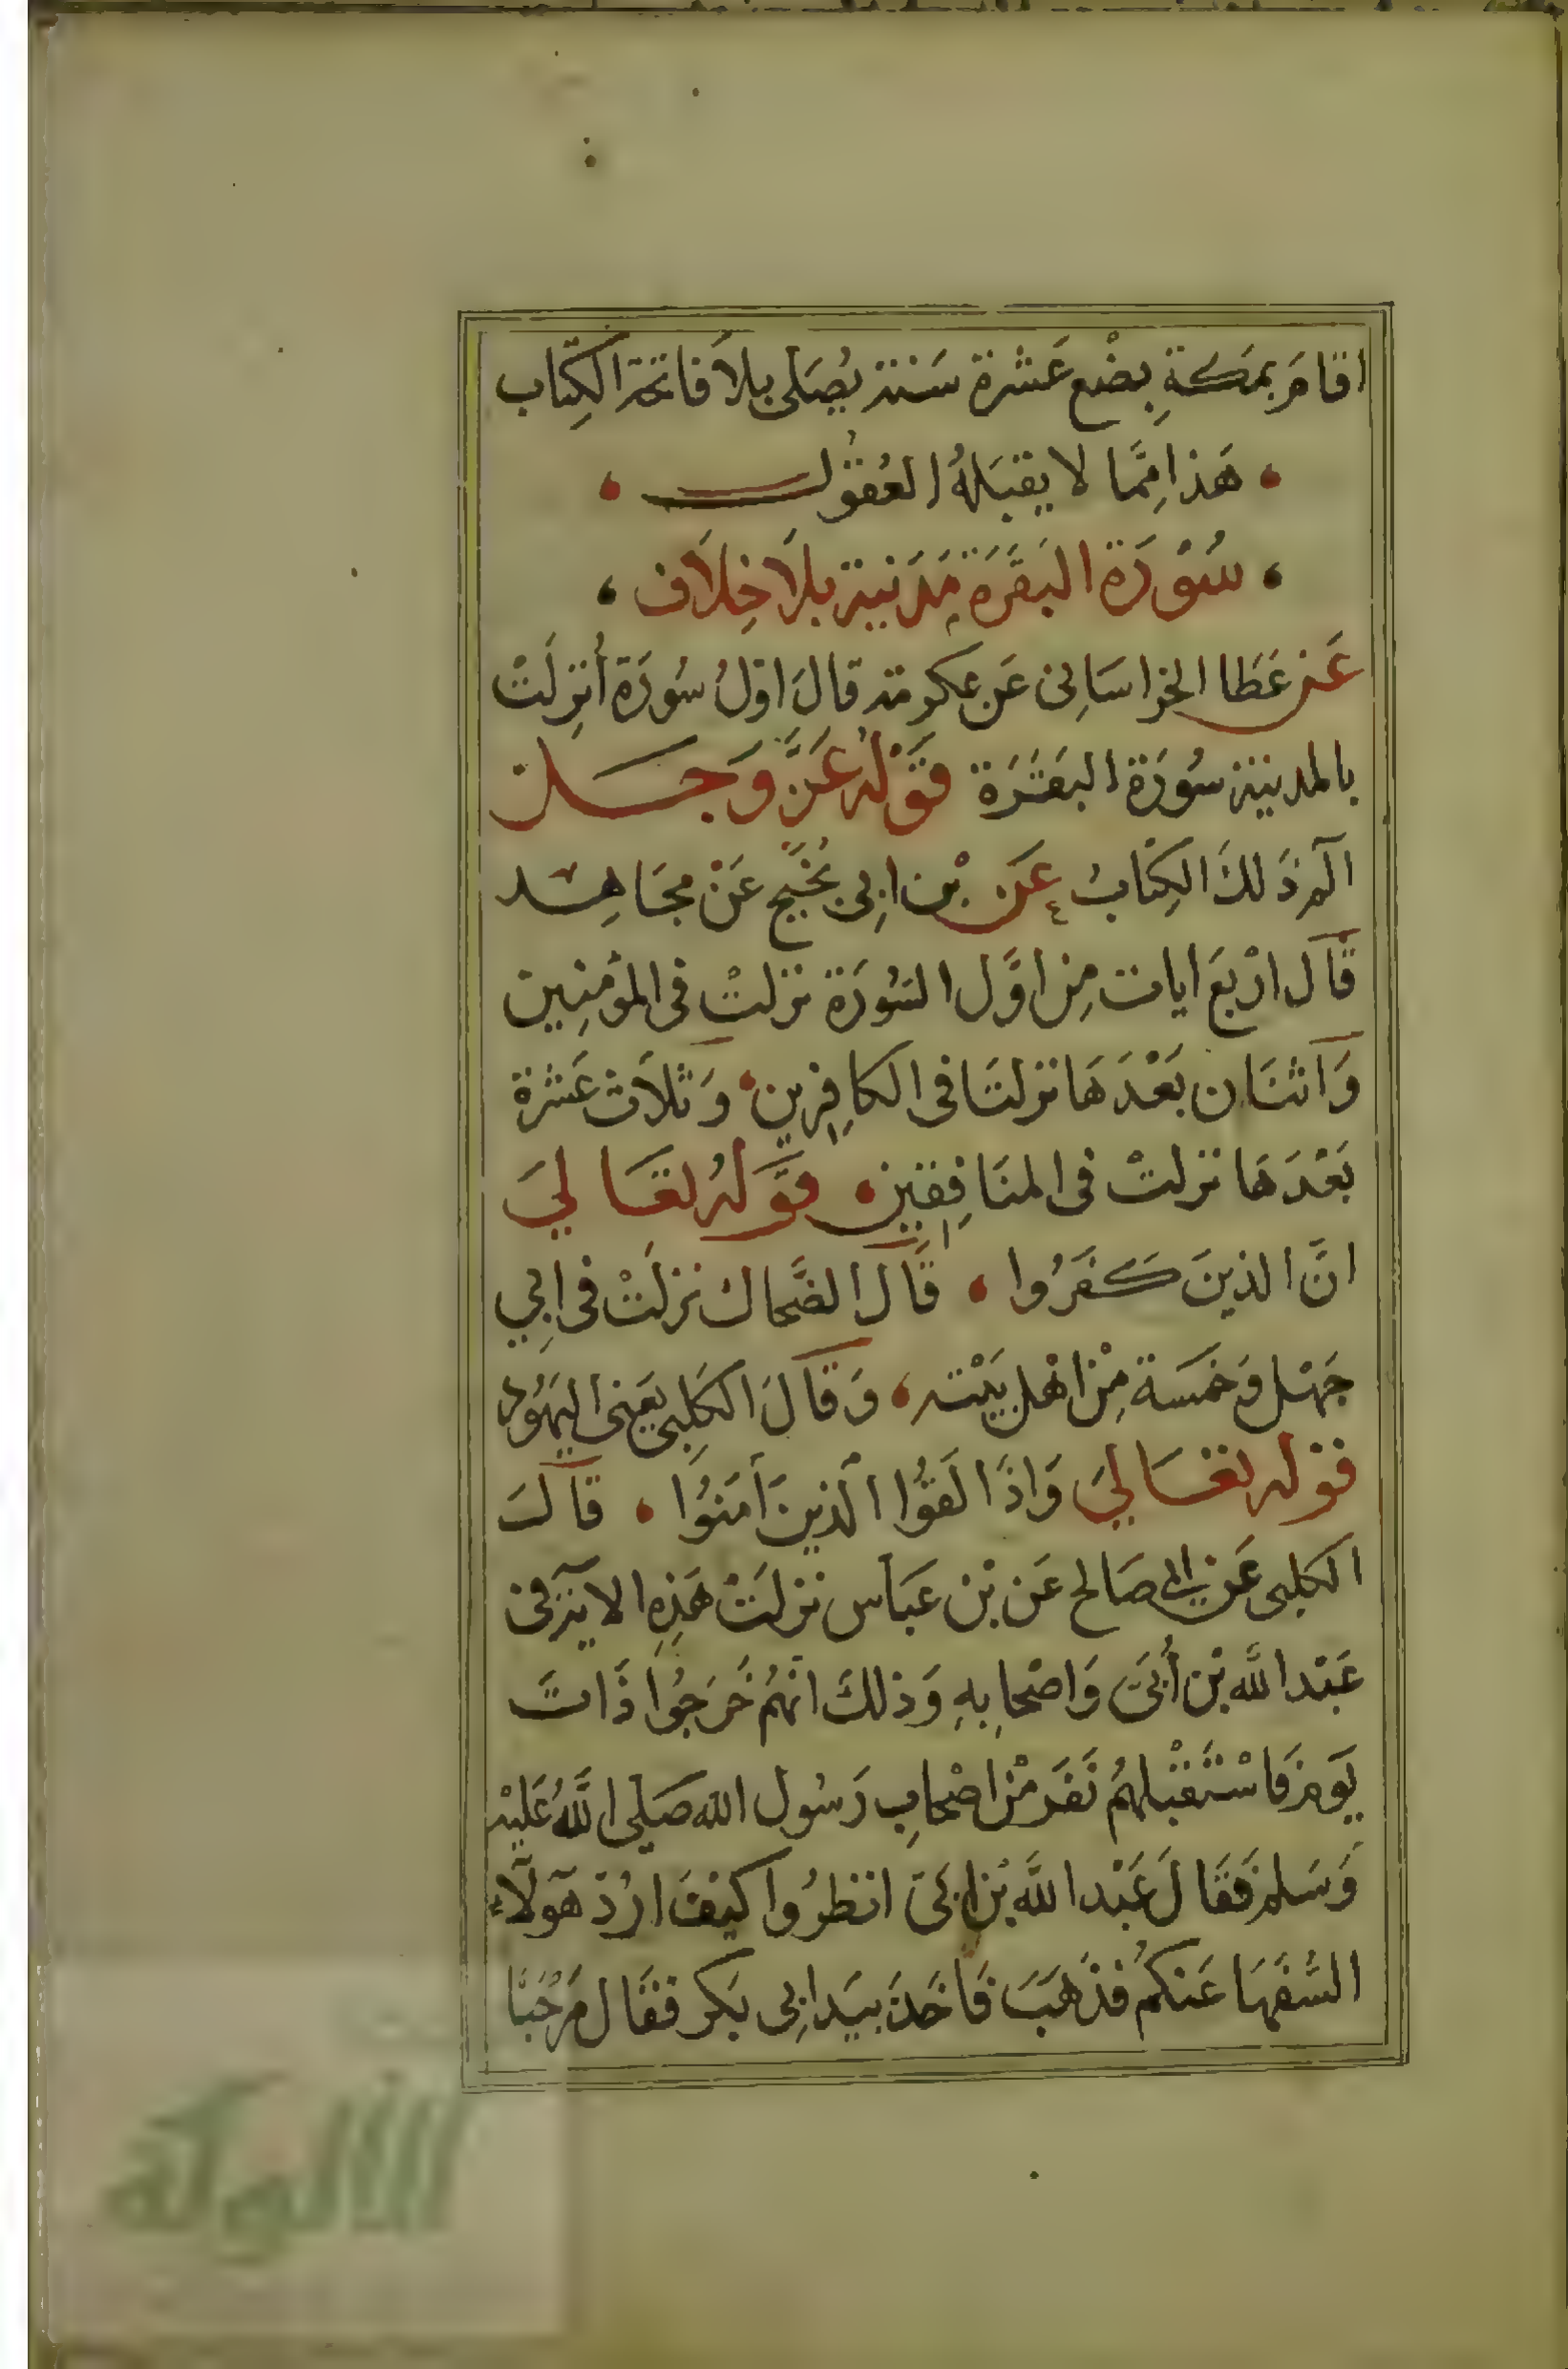 اقامَ بمَكةِ بِضْع عَشْرة سَنة يُصَلى بلاَ فاتحة الكِتاب
هَذا مِمَّا لا يقبَلهُ العُقوُل
سُوْرَة البَقَرَة مَدَنية بلاَ خِلاَف
عَن عَطا الخراسَانِى عَن عِكرمة قالَ اوّلُ سُورَة أُنزِلَتْ
بالمدينة سُورَة البَقَرَة قَوْلهُ عَزَّ وَجَل
الٓم ذَلكَ الكِتابُ عَن بْن ابِى نجُيَح عَنْ مجَاهِد
قَال ارْبعَ ايات مِن اوَّل السُورَة نزلتْ فى المؤمنِين
وَاثنَان بَعْدَهَا نزلتَا فى الكافِرِين وَثلاَث عَشرة
بَعْدَهَا نزلتْ فى المنَافِقين قَوَلهُ تعَالىَ
انَّ الذينَ كَفَرُوا قَال الضَّحاك نزلَتْ فى ابِي
جَهْل وَخمَسَة مِنْ اهْل بَيْته وَقالَ الكَلِبى يَعنى اليَهُود
قوْله تعَالىَ وَاذَا لَقوُا الذينَ أمَنوُا قالَ
الكلبى عَن ابى صَالح عَن بْن عَبَاس نزلَتْ هَذِهِ الاية فى
عَبْد اللَّه بْن أُبَىّ وَاصْحابِهِ وَذلكَ انهُم خَرَجُوا ذَاتَ
يَوم فَاسْتَقْبلهُم نَفَر مْن اصْحابِ رَسُول الله صَلى اللَّهُ عَليْه
وَسَلم فَقَالَ عَبْد اللَّه بْن ابىّ انظرُوا كيْفَ ارُدّ هَوٓلاَء
السُّفَهَا عَنكمُ فذَهَبَ فَاخَذَ بيَد ابِى بَكر فقَال مَرْحَبًا
الألوكة